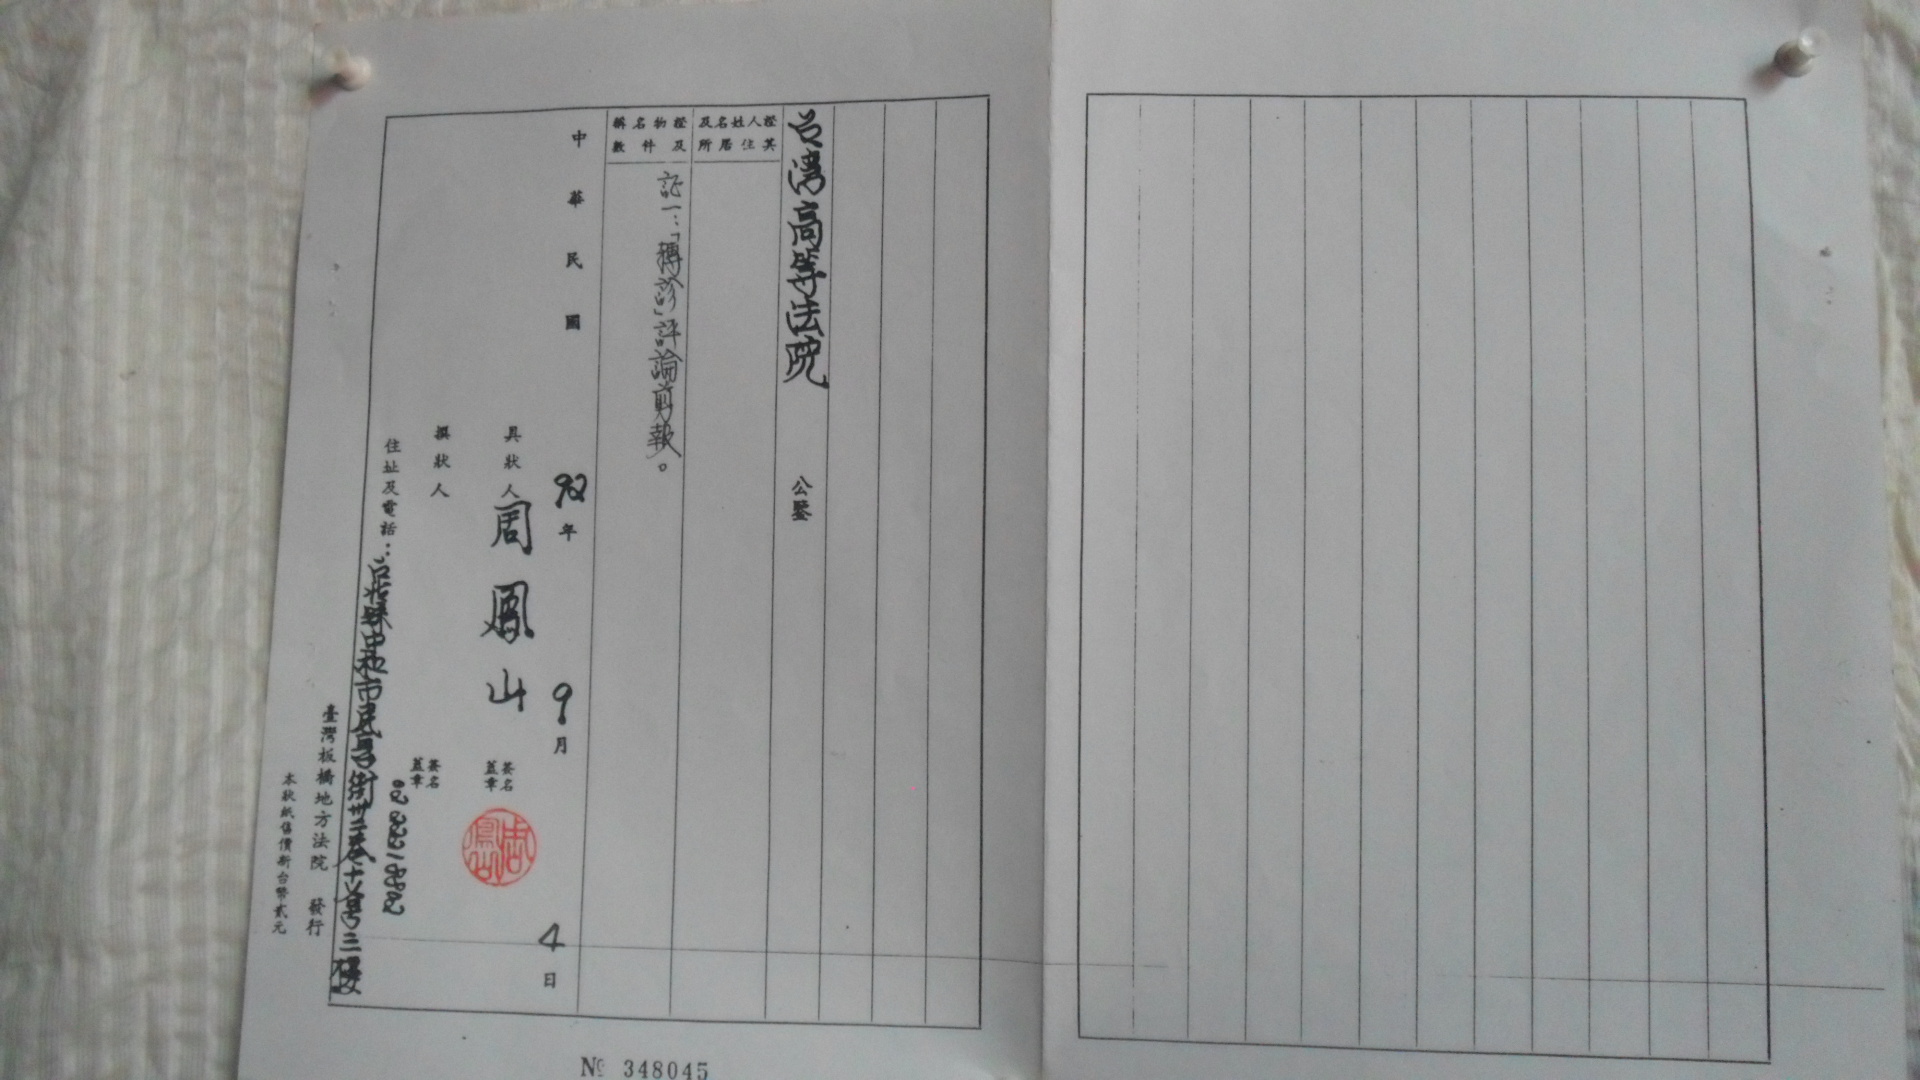 台灣高等法院 公鑒
證人姓名及
其住居所
證物名稱
及件數
証一：「轉診」評論剪報。
中華民國 92年 9月 4日
具狀人 周鳳山 簽名蓋章
撰狀人 簽名蓋章
住址及電話：台北縣中和市民享街卅三巷十六號三樓
02 22218882
臺灣板橋地方法院 發行
本狀紙售價新台幣貳元
№ 348045